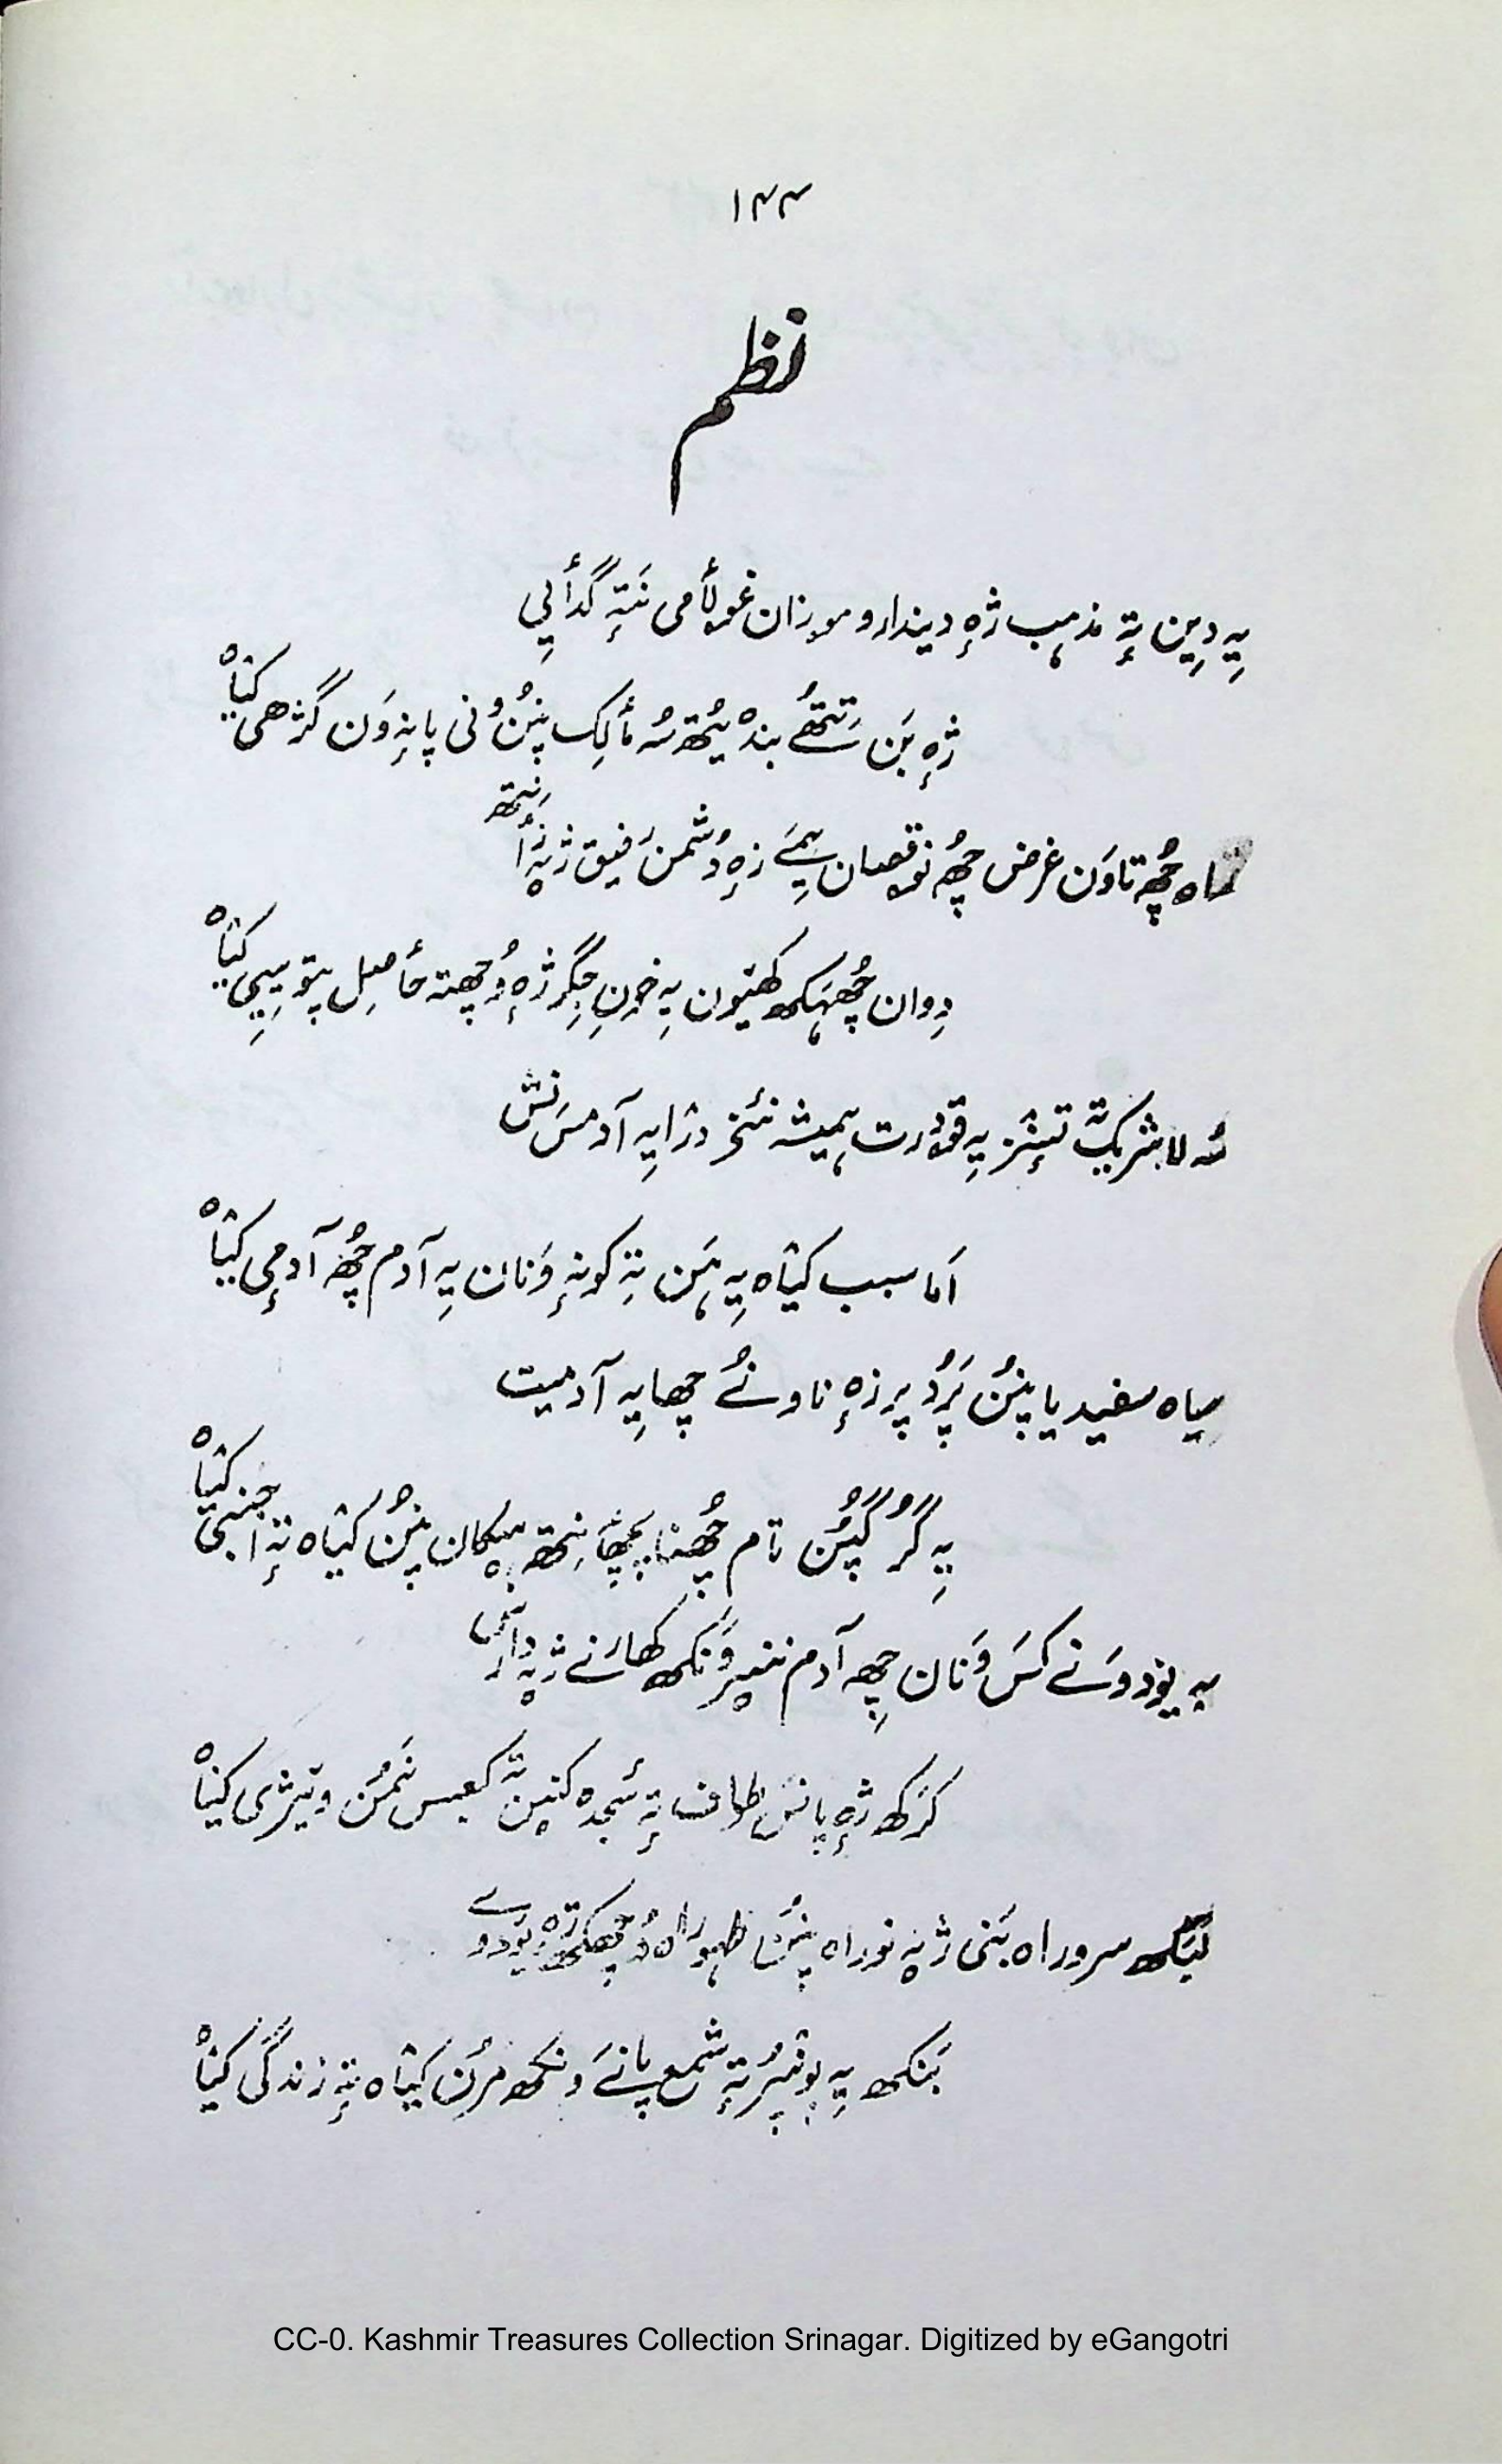 ۱۴۴
نظم
یہِ دِین تہٕ مذہب ژہٕ دیندارو موزان غولٲمی نَتہٕ گدٲیي
ژہٕ بَن تِتھُے بندہ یُتھ سُہ مٲلِک پنُن وُنی پانہٕ وَن گژھی کیٛاہ
چھُ تاوَن غرض چھُ نوقصان یِمَے زہٕ دُشمن رَفیق ژٕنِتھ
دِوان چھُہَکھ کھیٛون یہِ خونِ جِگر ژہٕ وُچھتہ حٲصِل پتو یِیي کیٛاہ
سُہ لا شریک تہٕ تٔسٕنز یہِ قودرت ہمیشہ درٛایہِ آدمَس نِش
اَما سبب کیٛاہ یہِ ہَن تہِ کونہٕ وَنان یہِ آدم چھُ آدمی کیٛاہ
سیاہ سفید یا پنُن پَرُد پرزہٕ ناونُے چھا یہِ آدمیت
یہِ گُر گُپُن تام چھُنا پَرٛژھٲنِتھ ہیٚکان پنُن کیٛاہ تہٕ اجنبی کیٛاہ
یہ یودوَے کَس وَنان چھِہ آدم وَنکھ کھارنے ژٕ پٮ۪ہ دارس
کَرَکھ ژہٕ پانس طواف تہٕ سٔجدہ کنیٚن تہٕ کعبس نَمُن ویٚژی کیٛاہ
لَبَکھ سروراہ بَنی ژٕ پٮ۪ہ نوراہ پنُن ظہوراہ وُچھکھ ژہٕ یودوے
بَنکھ یہِ پونپُر تہٕ شمع پانَے وَنکھ مرُن کیٛاہ تہٕ زندگی کیٛاہ
CC-0. Kashmir Treasures Collection Srinagar. Digitized by eGangotri